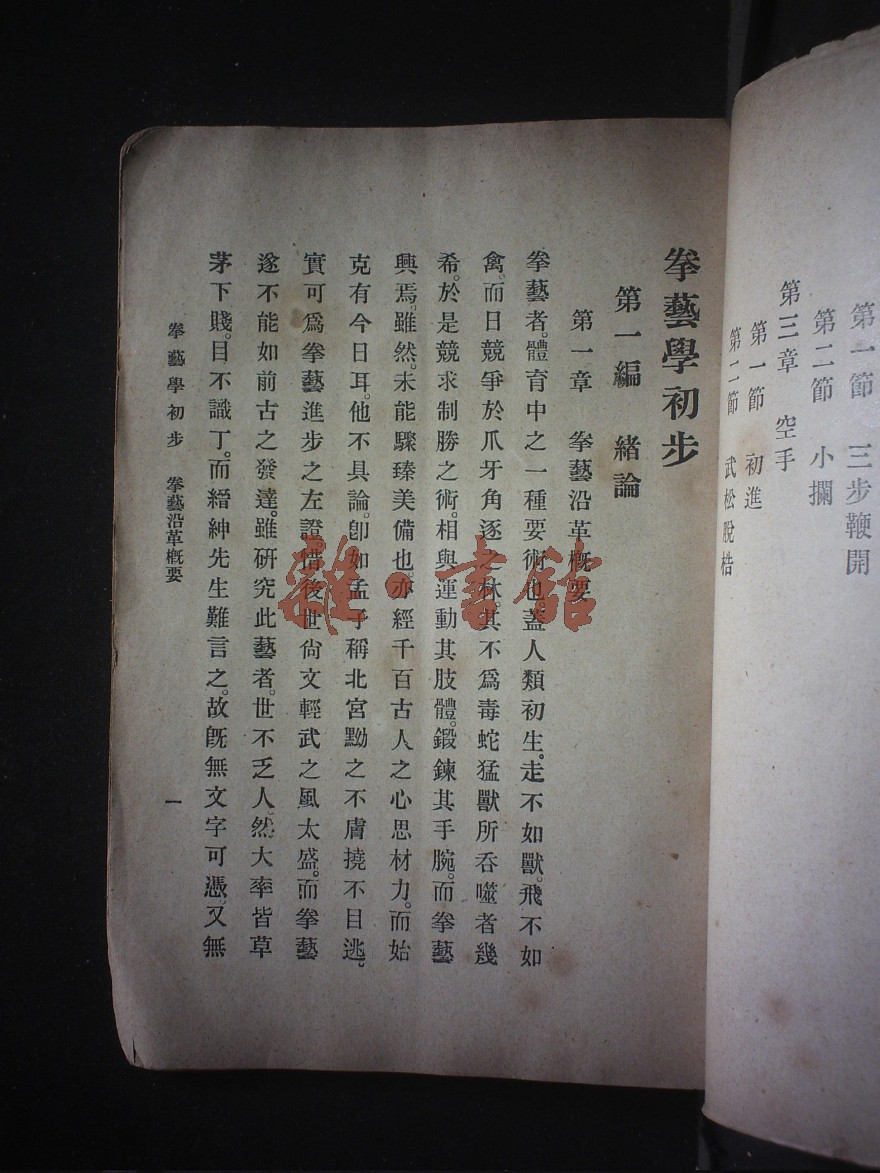 第一節　三步鞭開
第二節　小攔
第三章　空手
第一節　初進
第二節　武松脫梏
拳藝學初步
第一編　緒論
第一章　拳藝沿革概要
拳藝者。體育中之一種要術也蓋人類初生。走不如獸。飛不如
禽。而日競爭於爪牙角逐之林。其不爲毒蛇猛獸所吞噬者幾
希。於是競求制勝之術。相與運動其肢體。鍛鍊其手腕。而拳藝
興焉。雖然。未能驟臻美備也。亦經千百古人之心思材力。而始
克有今日耳。他不具論。卽如孟子稱北宮黝之不膚撓不目逃。
實可爲拳藝進步之左證惜後世尙文輕武之風太盛。而拳藝
遂不能如前古之發達。雖研究此藝者。世不乏人。然大率皆草
茅下賤。目不識丁。而縉紳先生難言之。故旣無文字可憑。又無
拳藝學初步　拳藝沿革概要
一
雜·書館